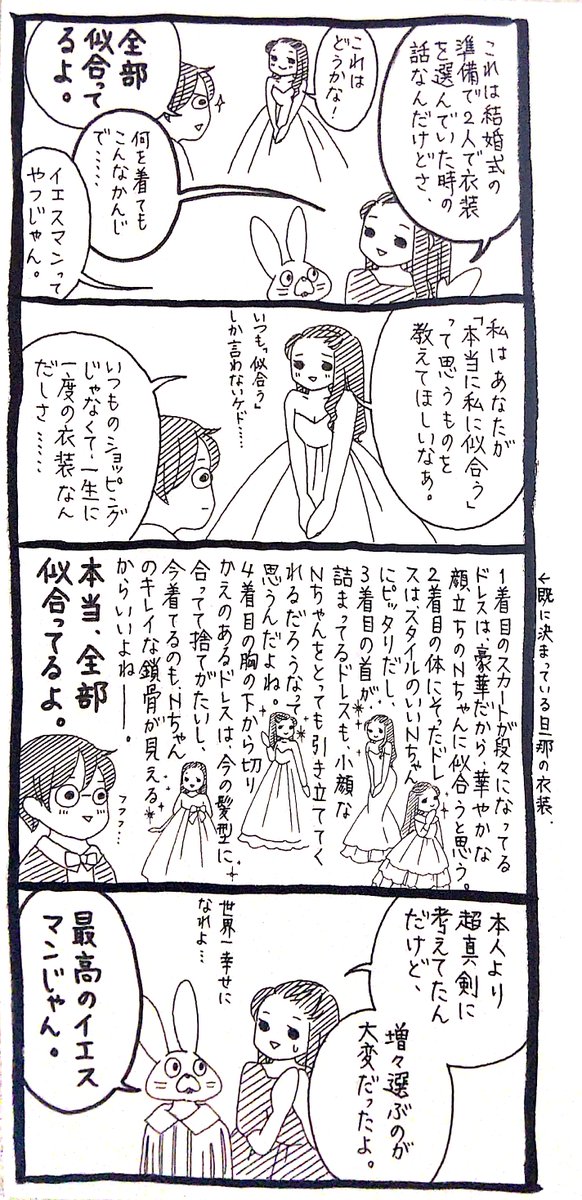 これは結婚式の
準備で2人で衣装
を選んでいた時の
話なんだけどさ、
これは
どうかな!
全部
似合って
るよ。
何を着ても
こんなかんじ
で……
イエスマンって
やつじゃん。
私はあなたが
「本当に私に似合う」
って思うものを
教えてほしいなあ。
いつも「似合う」
しか言わないケド……
いつものショッピング
じゃなくて一生に
一度の衣装なん
だしさ……
←既に決まっている旦那の衣装。
1着目のスカートが段々になってる
ドレスは、豪華だから、華やかな
顔立ちのNちゃんに似合うと思う。
2着目の体にそったドレ
スはズタイルのいいNちゃん
にピッタリだし、
3着目の首が
詰まってるドレスも、小顔な
Nちゃんをとっても引き立ててく
れるだろうなって
思うんだよね。
4着目の胸の下から切り
かえのあるドレスは、今の髪型に
合ってて捨てがたいし、
今着てるのも、Nちゃん
のキレイな鎖骨が見える
からいいよねー。
本当、全部
似合ってるよ。
フフフ…
本人より
超真剣に
考えてたん
だけど、
増々選ぶのが
大変だったよ。
世界一幸せに
なれよ…
最高のイエス
マンじゃん。